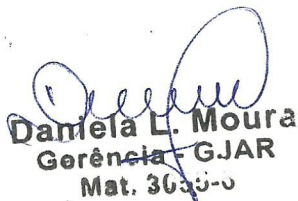 Daniela L. Moura
Gerência - GJAR
Mat.